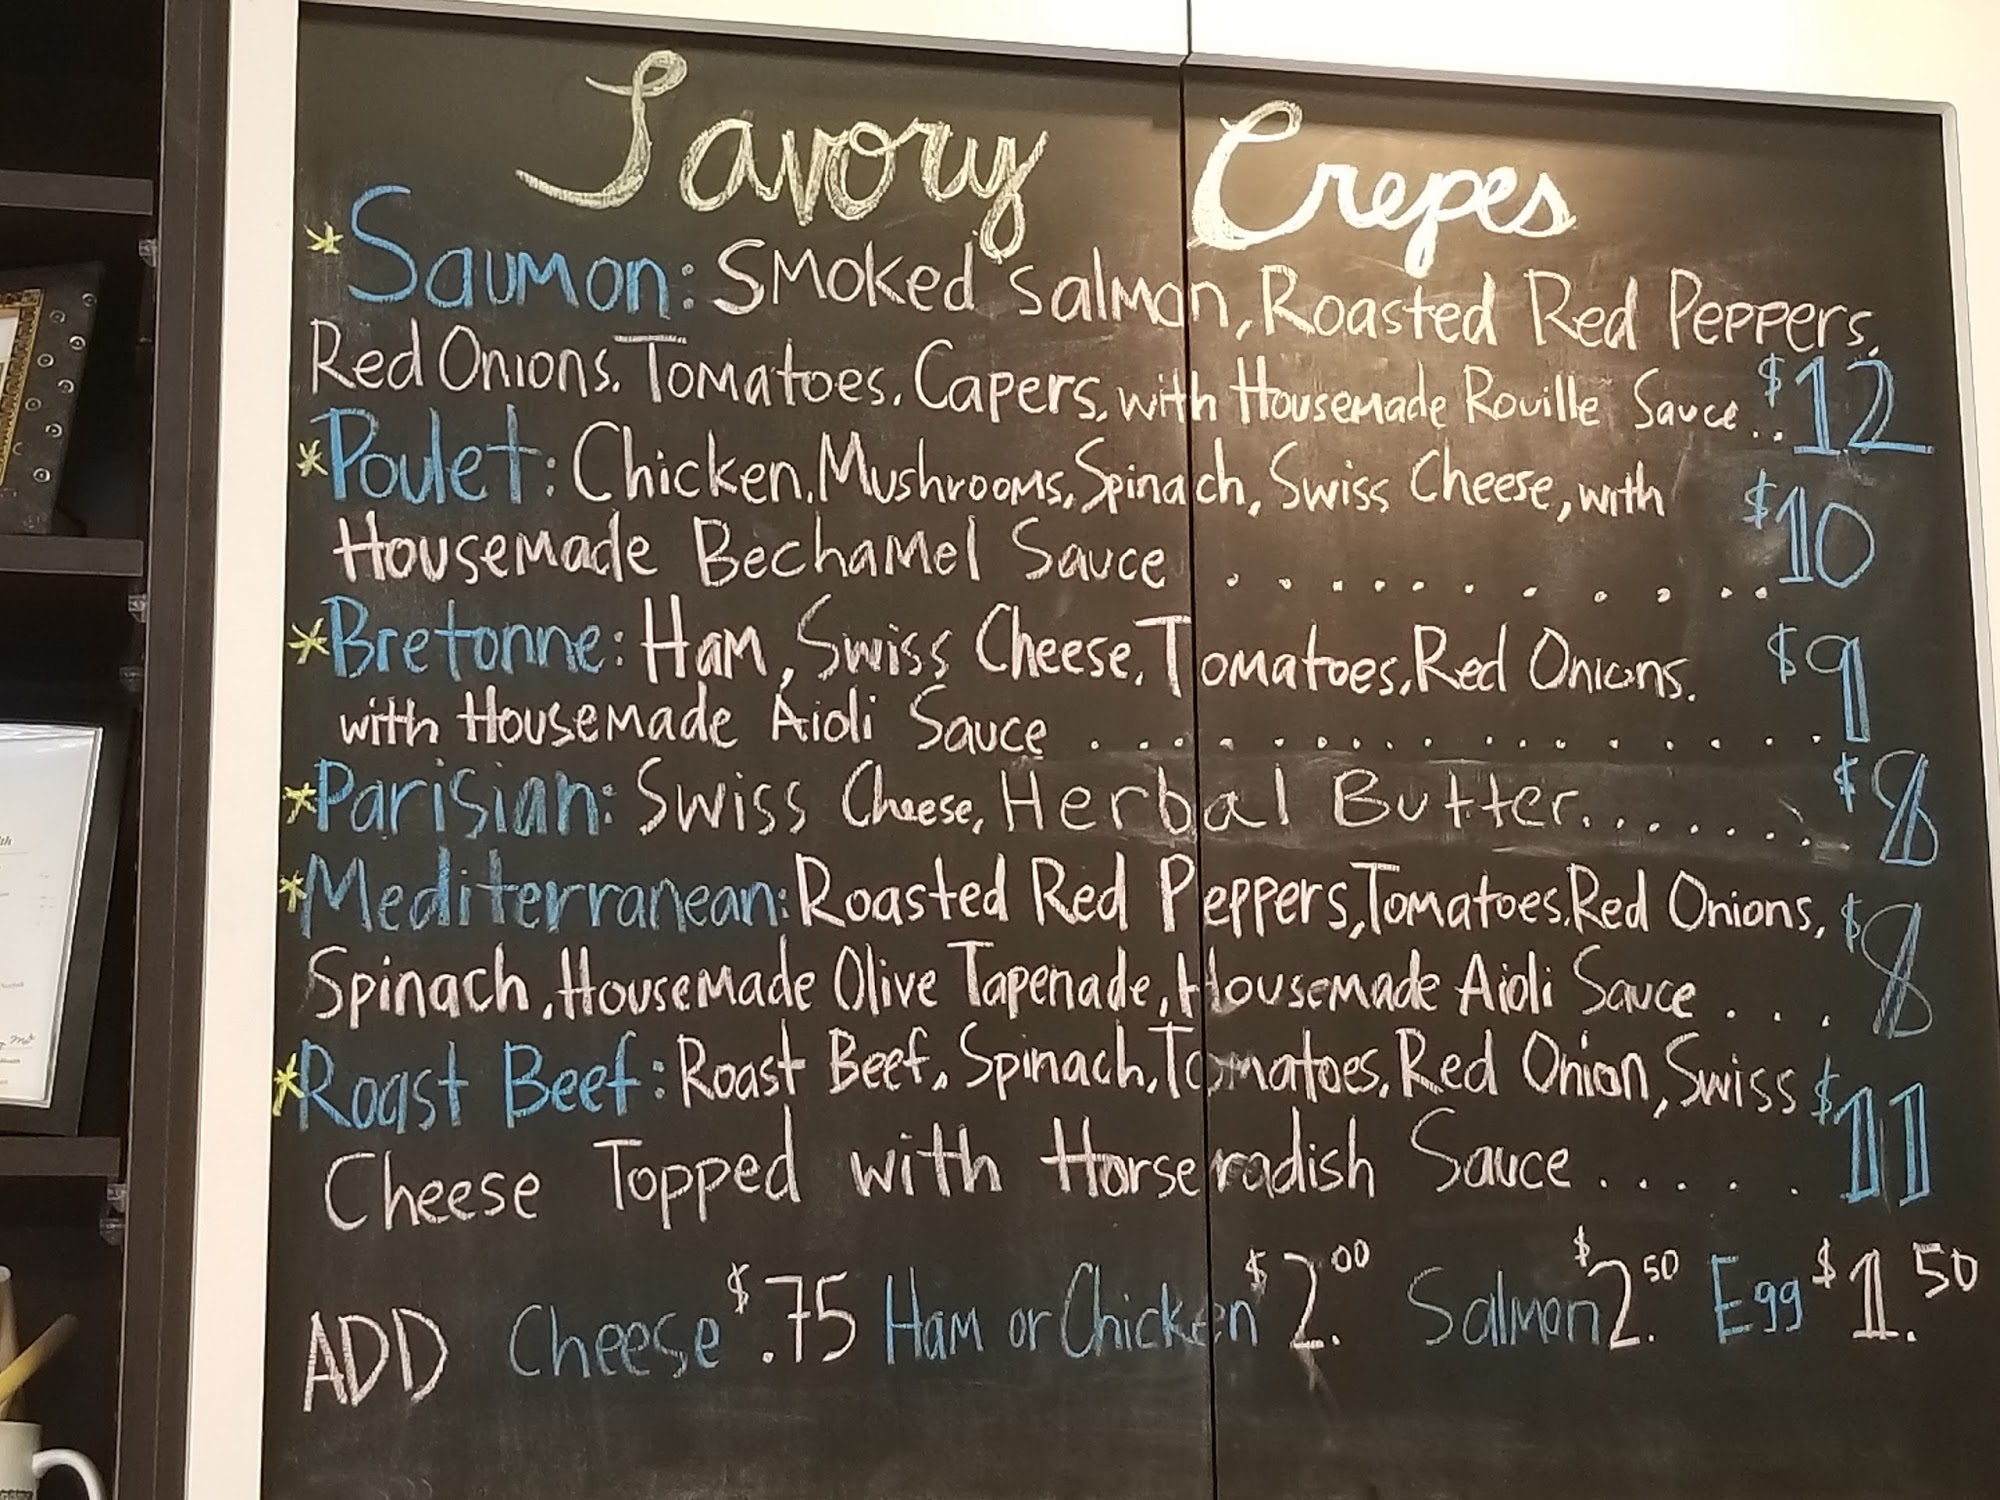 Savory Crepes
*Saumon: Smoked Salmon, Roasted Red Peppers,
Red Onions, Tomatoes, Capers, with Housemade Rouille Sauce.. $12
*Poulet: Chicken, Mushrooms, Spinach, Swiss Cheese, with $10
Housemade Bechamel Sauce ...........
*Bretonne: Ham, Swiss Cheese, Tomatoes, Red Onions. $9
with Housemade Aioli Sauce .................
*Parisian: Swiss Cheese, Herbal Butter....... $8
*Mediterranean: Roasted Red Peppers, Tomatoes, Red Onions, $8
Spinach, Housemade Olive Tapenade, Housemade Aioli Sauce ...
*Roast Beef: Roast Beef, Spinach, Tomatoes, Red Onion, Swiss $11
Cheese Topped with Horseradish Sauce .....
ADD Cheese $.75 Ham or Chicken $2.00 Salmon $2.50 Egg $1.50